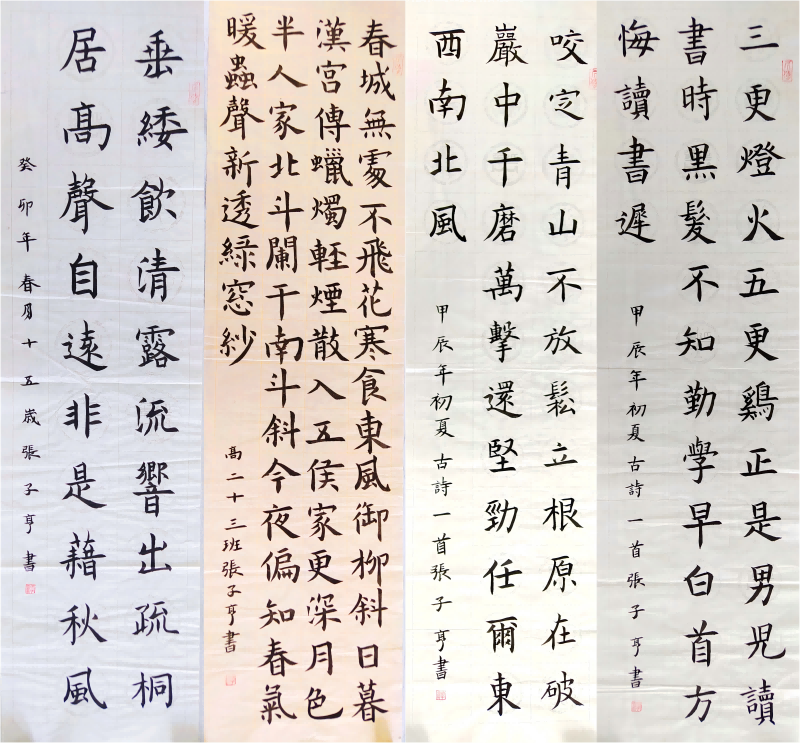 三更燈火五更鷄正是男児讀
書時黑髮不知勤學早白首方
悔讀書遲
甲辰年初夏古詩一首張子亨書
咬定青山不放鬆立根原在破
巖中千磨萬擊還堅勁任爾東
西南北風
甲辰年初夏古詩一首張子亨書
春城無處不飛花寒食東風御柳斜日暮
漢宮傳蠟燭輕煙散入五侯家更深月色
半人家北斗闌干南斗斜今夜偏知春氣
暖蟲聲新透綠窓紗
高二十三班張子亨書
垂緌飲清露流響出疏桐
居高聲自遠非是藉秋風
癸卯年春月十五歲張子亨書